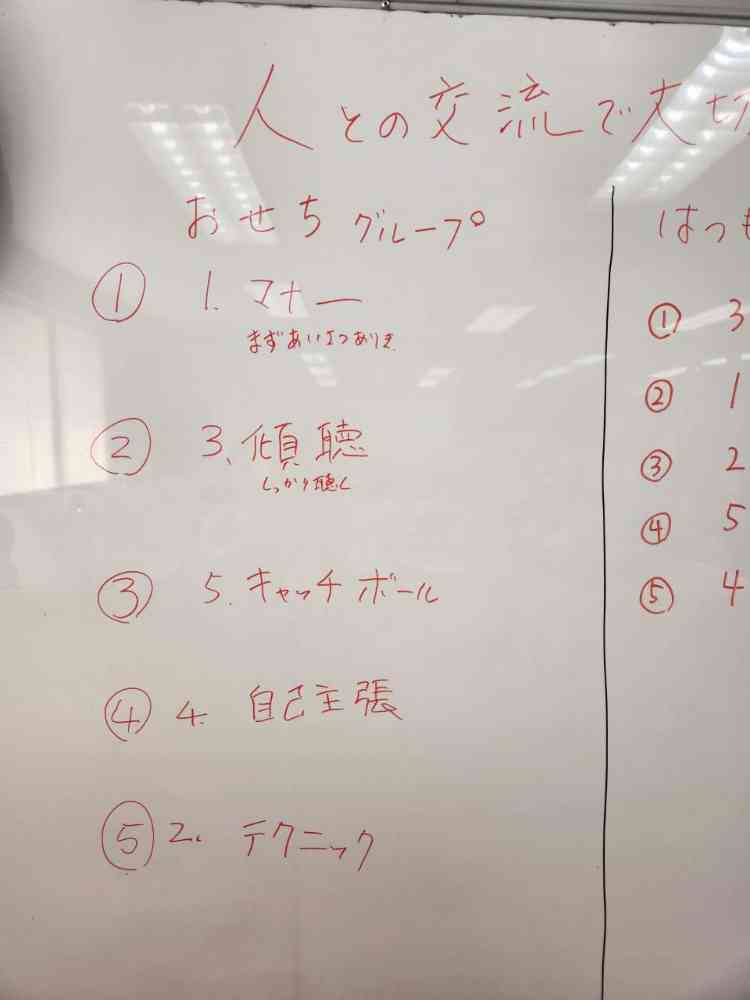 人との交流で大切
おせちグループ
① 1. マナー
まずあいさつありき
② 3、傾聴
しっかり聴く
③ 5. キャッチボール
④ 4. 自己主張
⑤ 2. テクニック
はつ
① 3
② 1
③ 2
④ 5
⑤ 4